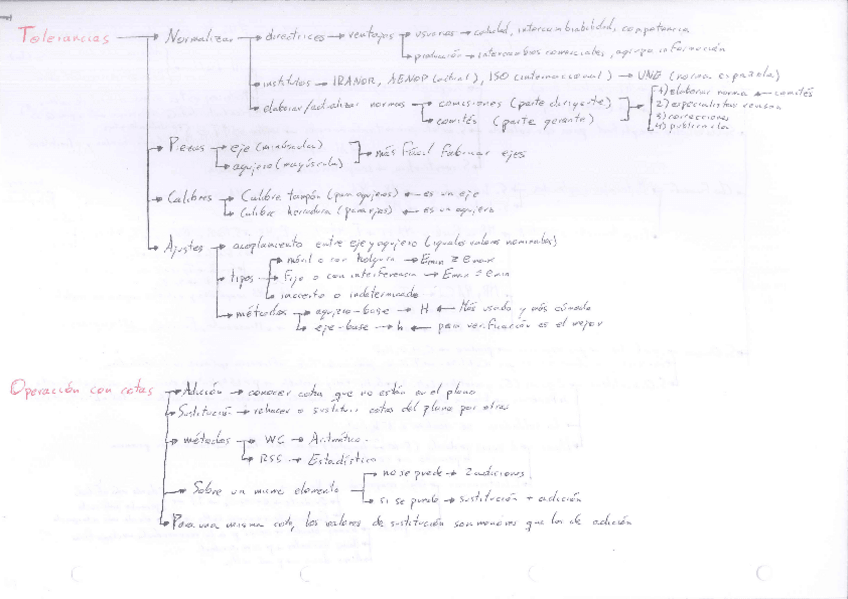 Tolerancias → Normalizar → directrices → ventajas → usuarios → calidad, intercambiabilidad, competencia
→ producción → intercambios comerciales, agiliza información
→ institutos → IRANOR, AENOR (actual), ISO (internacional) → UNE (norma española)
→ elaborar/actualizar normas → comisiones (parte dirigente)
→ comités (parte gerente)
1) elaborar norma ← comités
2) especialistas revisan
3) correcciones
4) publicarla
→ Piezas → eje (minúscula)
→ agujero (mayúscula)
→ más fácil fabricar ejes
→ Calibres → Calibre tampón (para agujeros) ← es un eje
→ Calibre herradura (para ejes) ← es un agujero
→ Ajustes → acoplamiento entre eje y agujero (iguales valores nominales)
→ tipos → móvil o con holgura → Emin ≥ emax
→ Fijo o con interferencia → Emax ≤ emin
→ incierto o indeterminado
→ métodos → agujero-base → H ← Más usado y más cómodo
→ eje-base → h ← para verificación es el mejor
Operación con cotas → Adición → conocer cotas que no están en el plano
→ Sustitución → rehacer o sustituir cotas del plano por otras
→ métodos → WC → Aritmético
→ RSS → Estadístico
→ Sobre un mismo elemento → no se puede → 2 adiciones
→ si se puede → sustitución + adición
→ Para una misma cota, los valores de sustitución son menores que los de adición